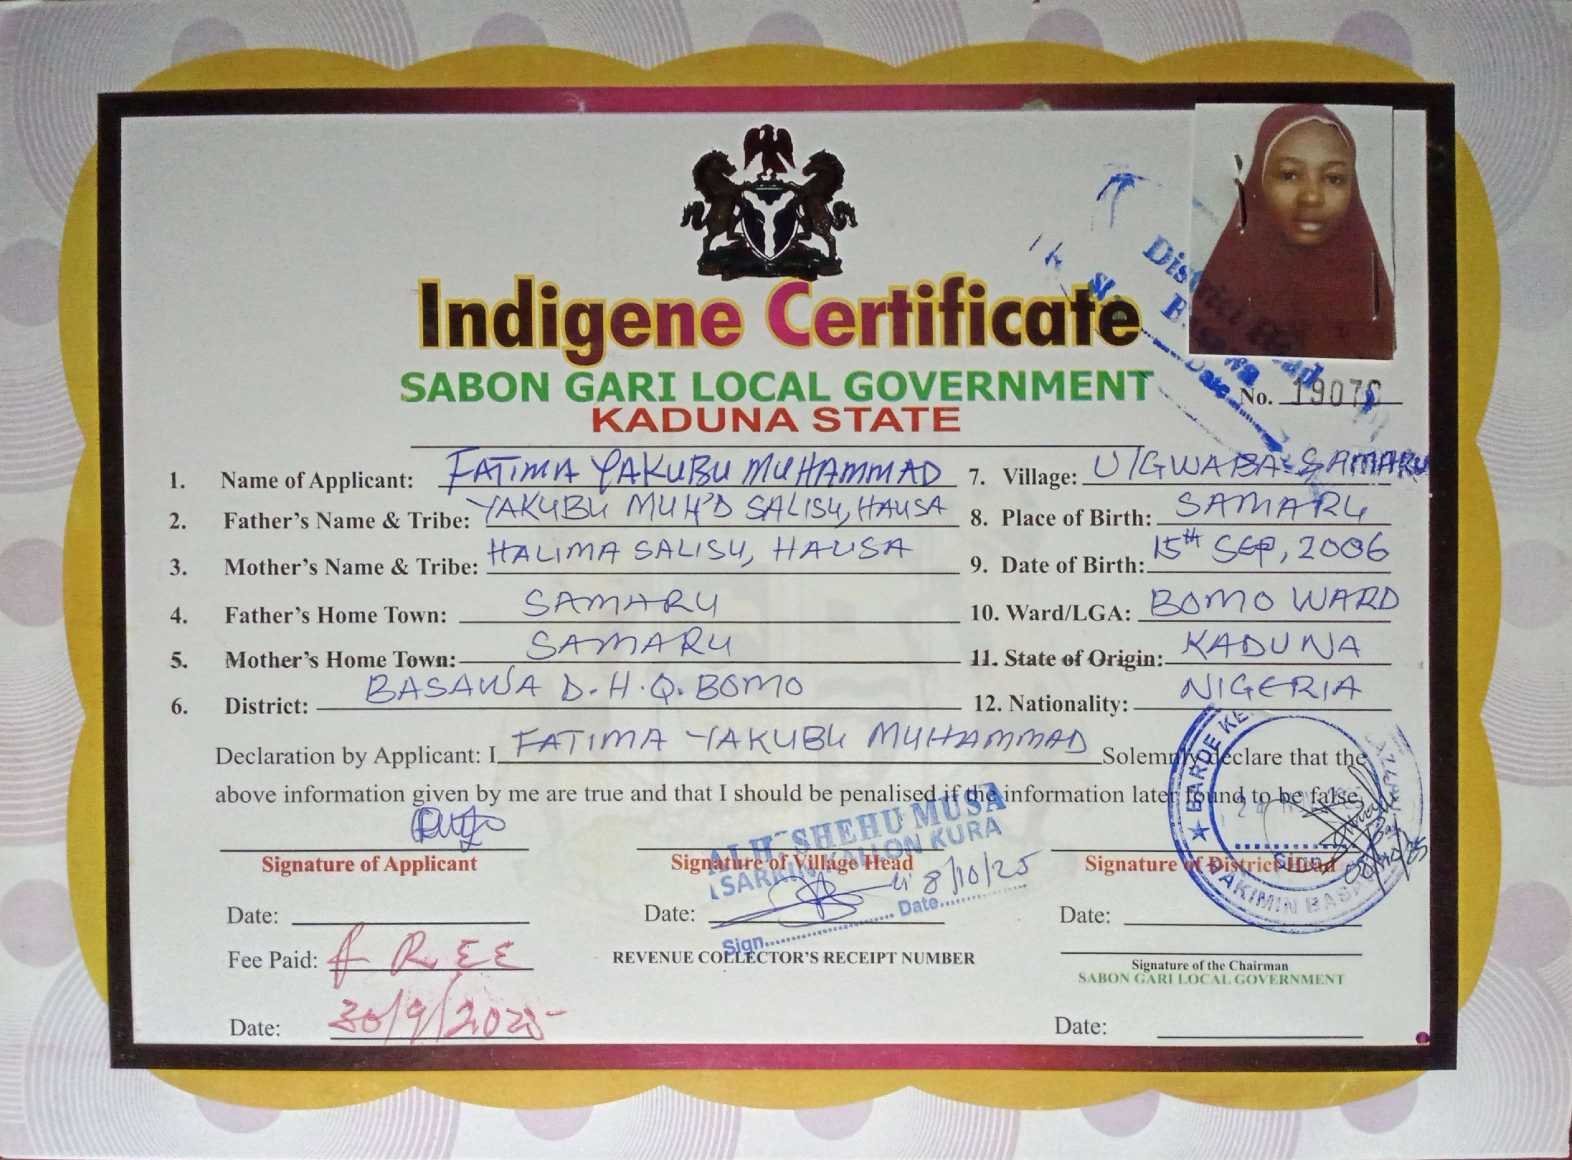 Indigene Certificate
SABON GARI LOCAL GOVERNMENT
KADUNA STATE
No. 1907
1. Name of Applicant: FATIMA YAKUBU MUHAMMAD
2. Father's Name & Tribe: YAKUBU MUH'D SALISU, HAUSA
3. Mother's Name & Tribe: HALIMA SALISU, HAUSA
4. Father's Home Town: SAMARU
5. Mother's Home Town: SAMARU
6. District: BASAWA D.H.Q. BOMO
7. Village: U/GWABA SAMARU
8. Place of Birth: SAMARU
9. Date of Birth: 15th SEP, 2006
10. Ward/LGA: BOMO WARD
11. State of Origin: KADUNA
12. Nationality: NIGERIA
Declaration by Applicant: I FATIMA YAKUBU MUHAMMAD Solemnly declare that the
above information given by me are true and that I should be penalised if the information later found to be false.
Signature of Applicant
Signature of Village Head
Signature of District Head
ALH. SHEHU MUSA
(SARKIN KALLON KURA
8/10/25
Date
Sign
District Head
Date
BARDE
HAKIMIN BASAWA
Sign
Date:
Date:
Date:
Fee Paid: FREE
REVENUE COLLECTOR'S RECEIPT NUMBER
Signature of the Chairman
SABON GARI LOCAL GOVERNMENT
Date: 30/9/2025
Date: